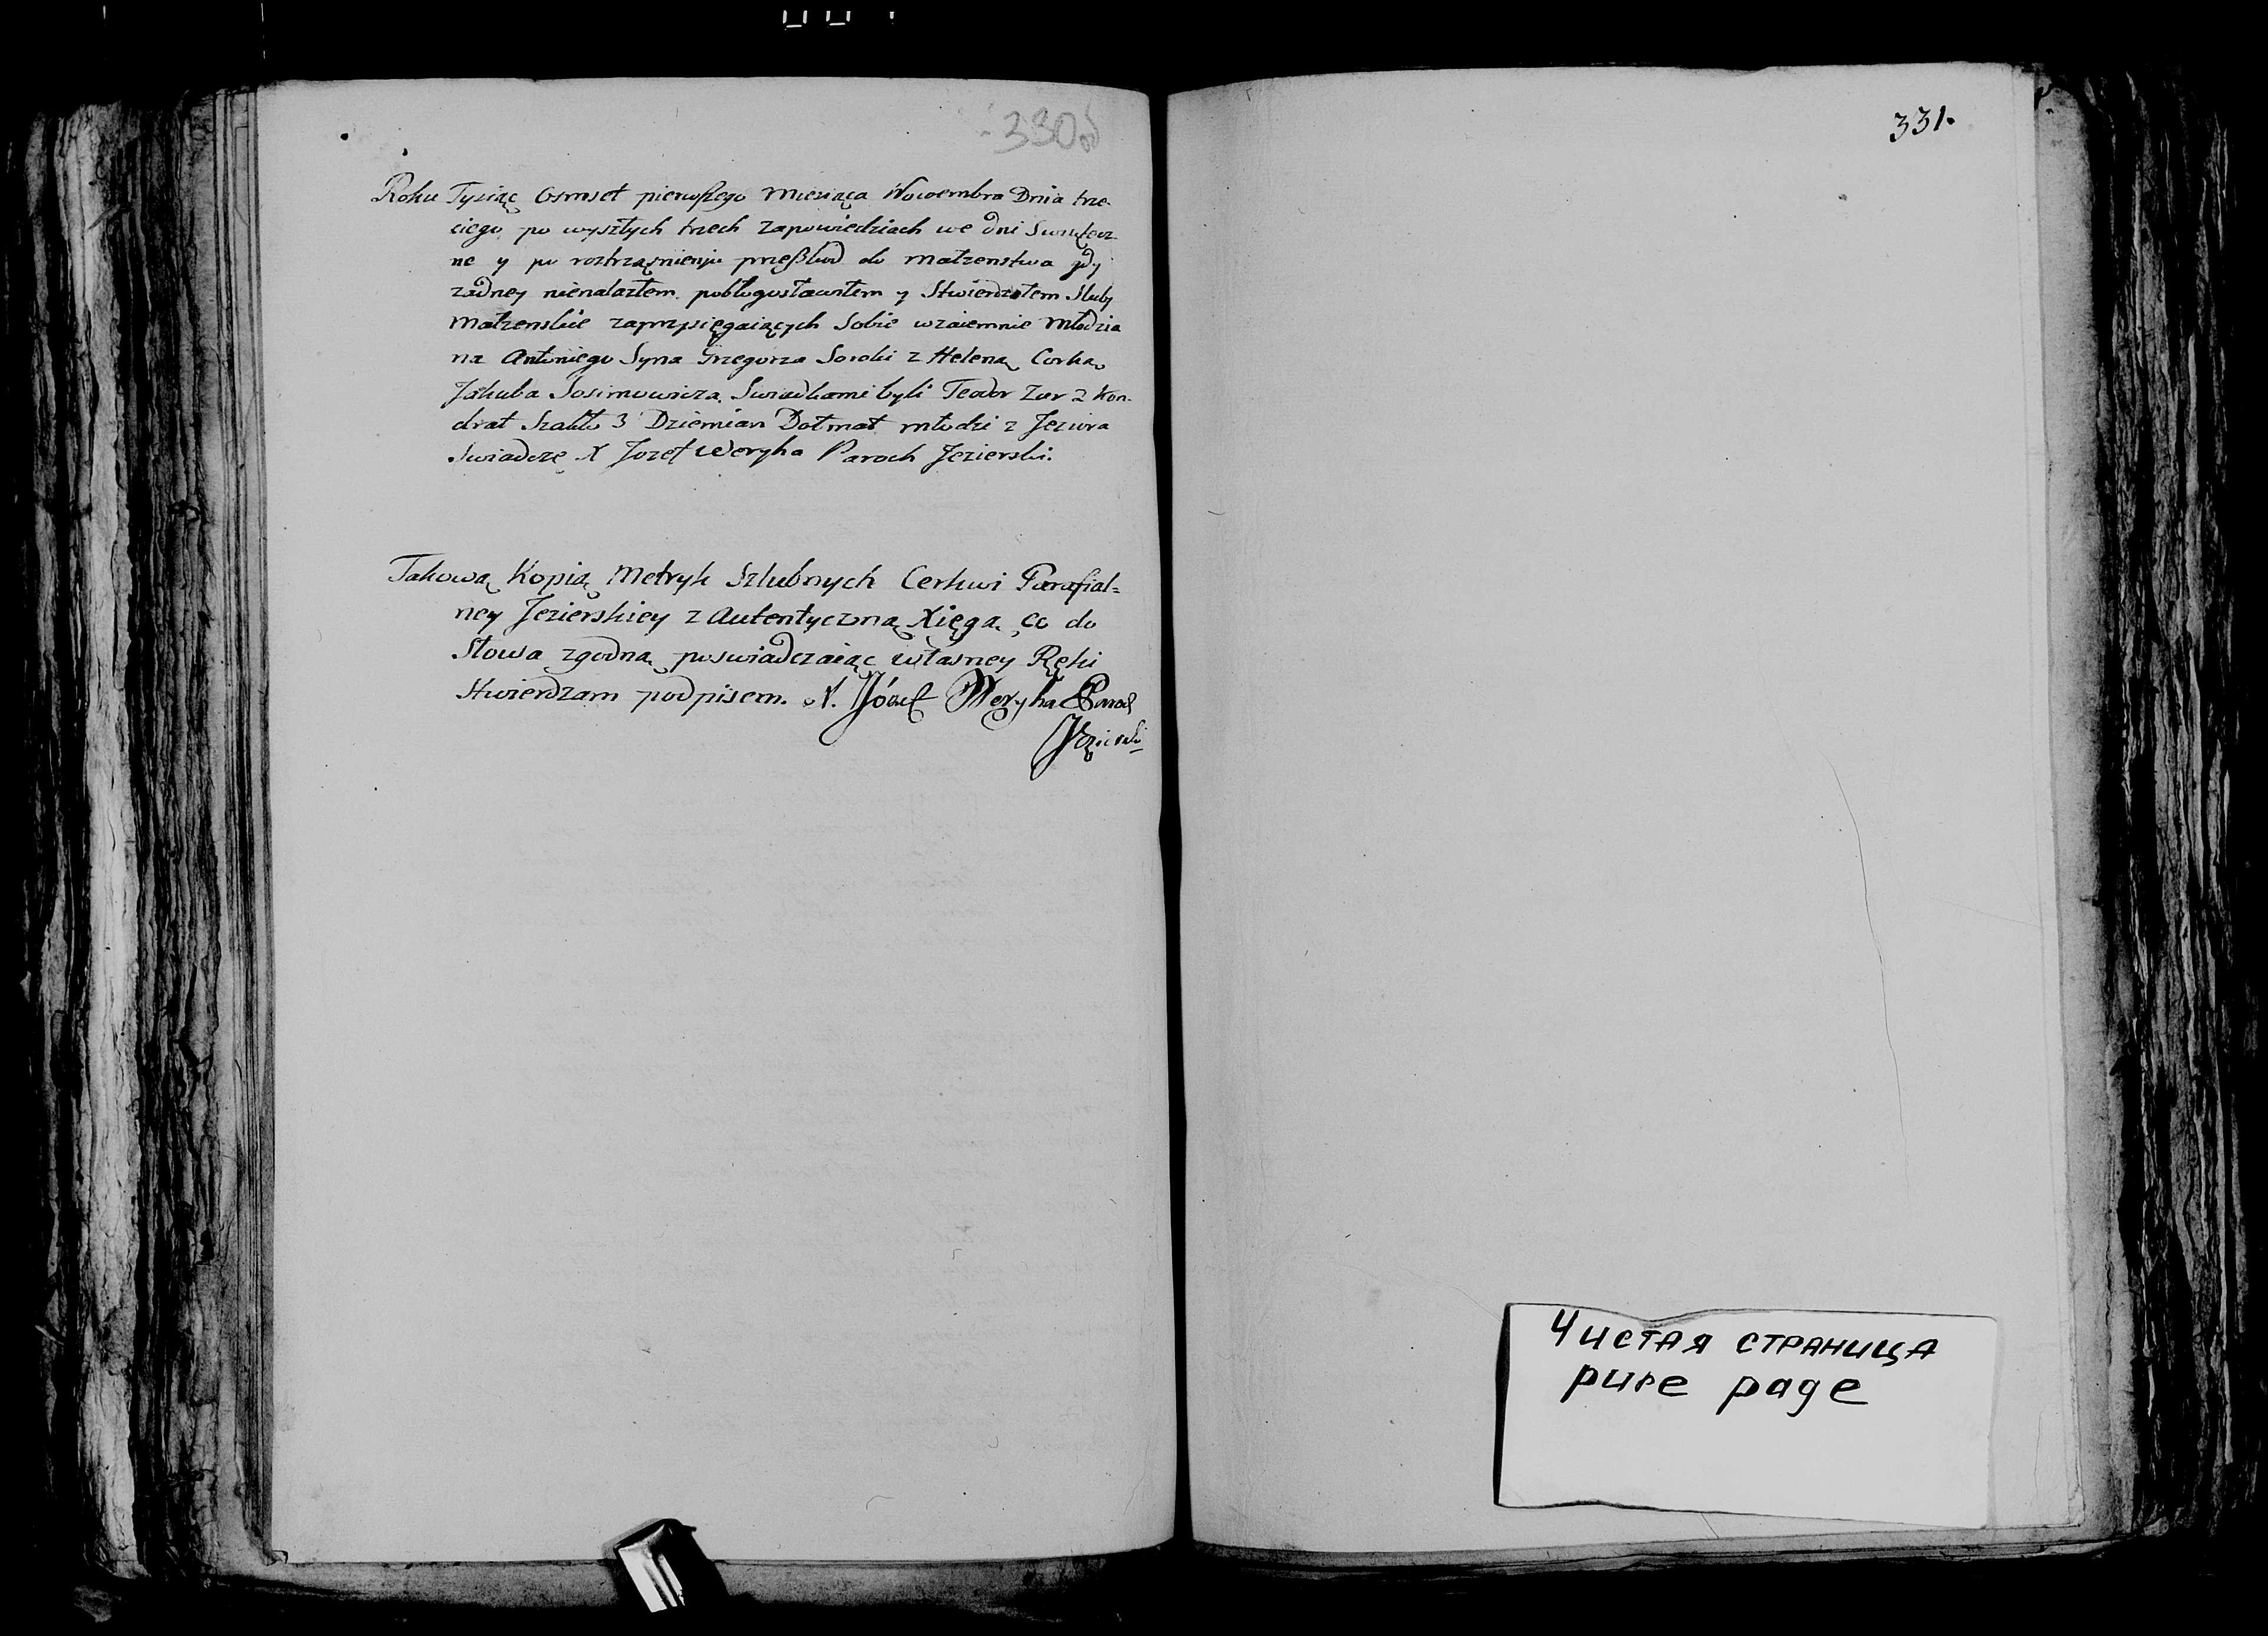 330об
Roku Tysiąc Osmset pierwszego Miesiąca Nowembra Dnia trze-
ciego po wyszłych trzech zapowiedziach we dni Swiątecz-
ne y po roztrząsnieniu przeszkod do małzenstwa gdy
zadney nienalazłem pobłogosławiłem y Stwierdziłem Sluby
małzenskie zaprzysięgaiących Sobie wzaiemnie młodzia
na Antoniego Syna Grzegorza Soroki z Heleną Corką
Jakuba Sosimowicza. Swiadkami byli Teodor Zur 2 Kon-
drat Szabło 3 Dziemian Dołmat młodzi z Jeziora
Swiadczę X Jozef Weryha Paroch Jezierski.
Takową Kopią Metryk Szlubnych Cerkwi Parafial=
ney Jezierskiey z Autentyczną Xięgą co do
Słowa zgodną poswiadczaiąc własney Ręki
stwierdzam podpisem. X. Józef Weryha Paroch
Jezierski
331.
Чистая страница
pure page